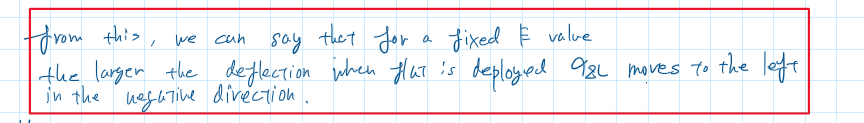 from this, we can say that for a fixed E value
the larger the deflection when flat is deployed α0L moves to the left
in the negative direction.